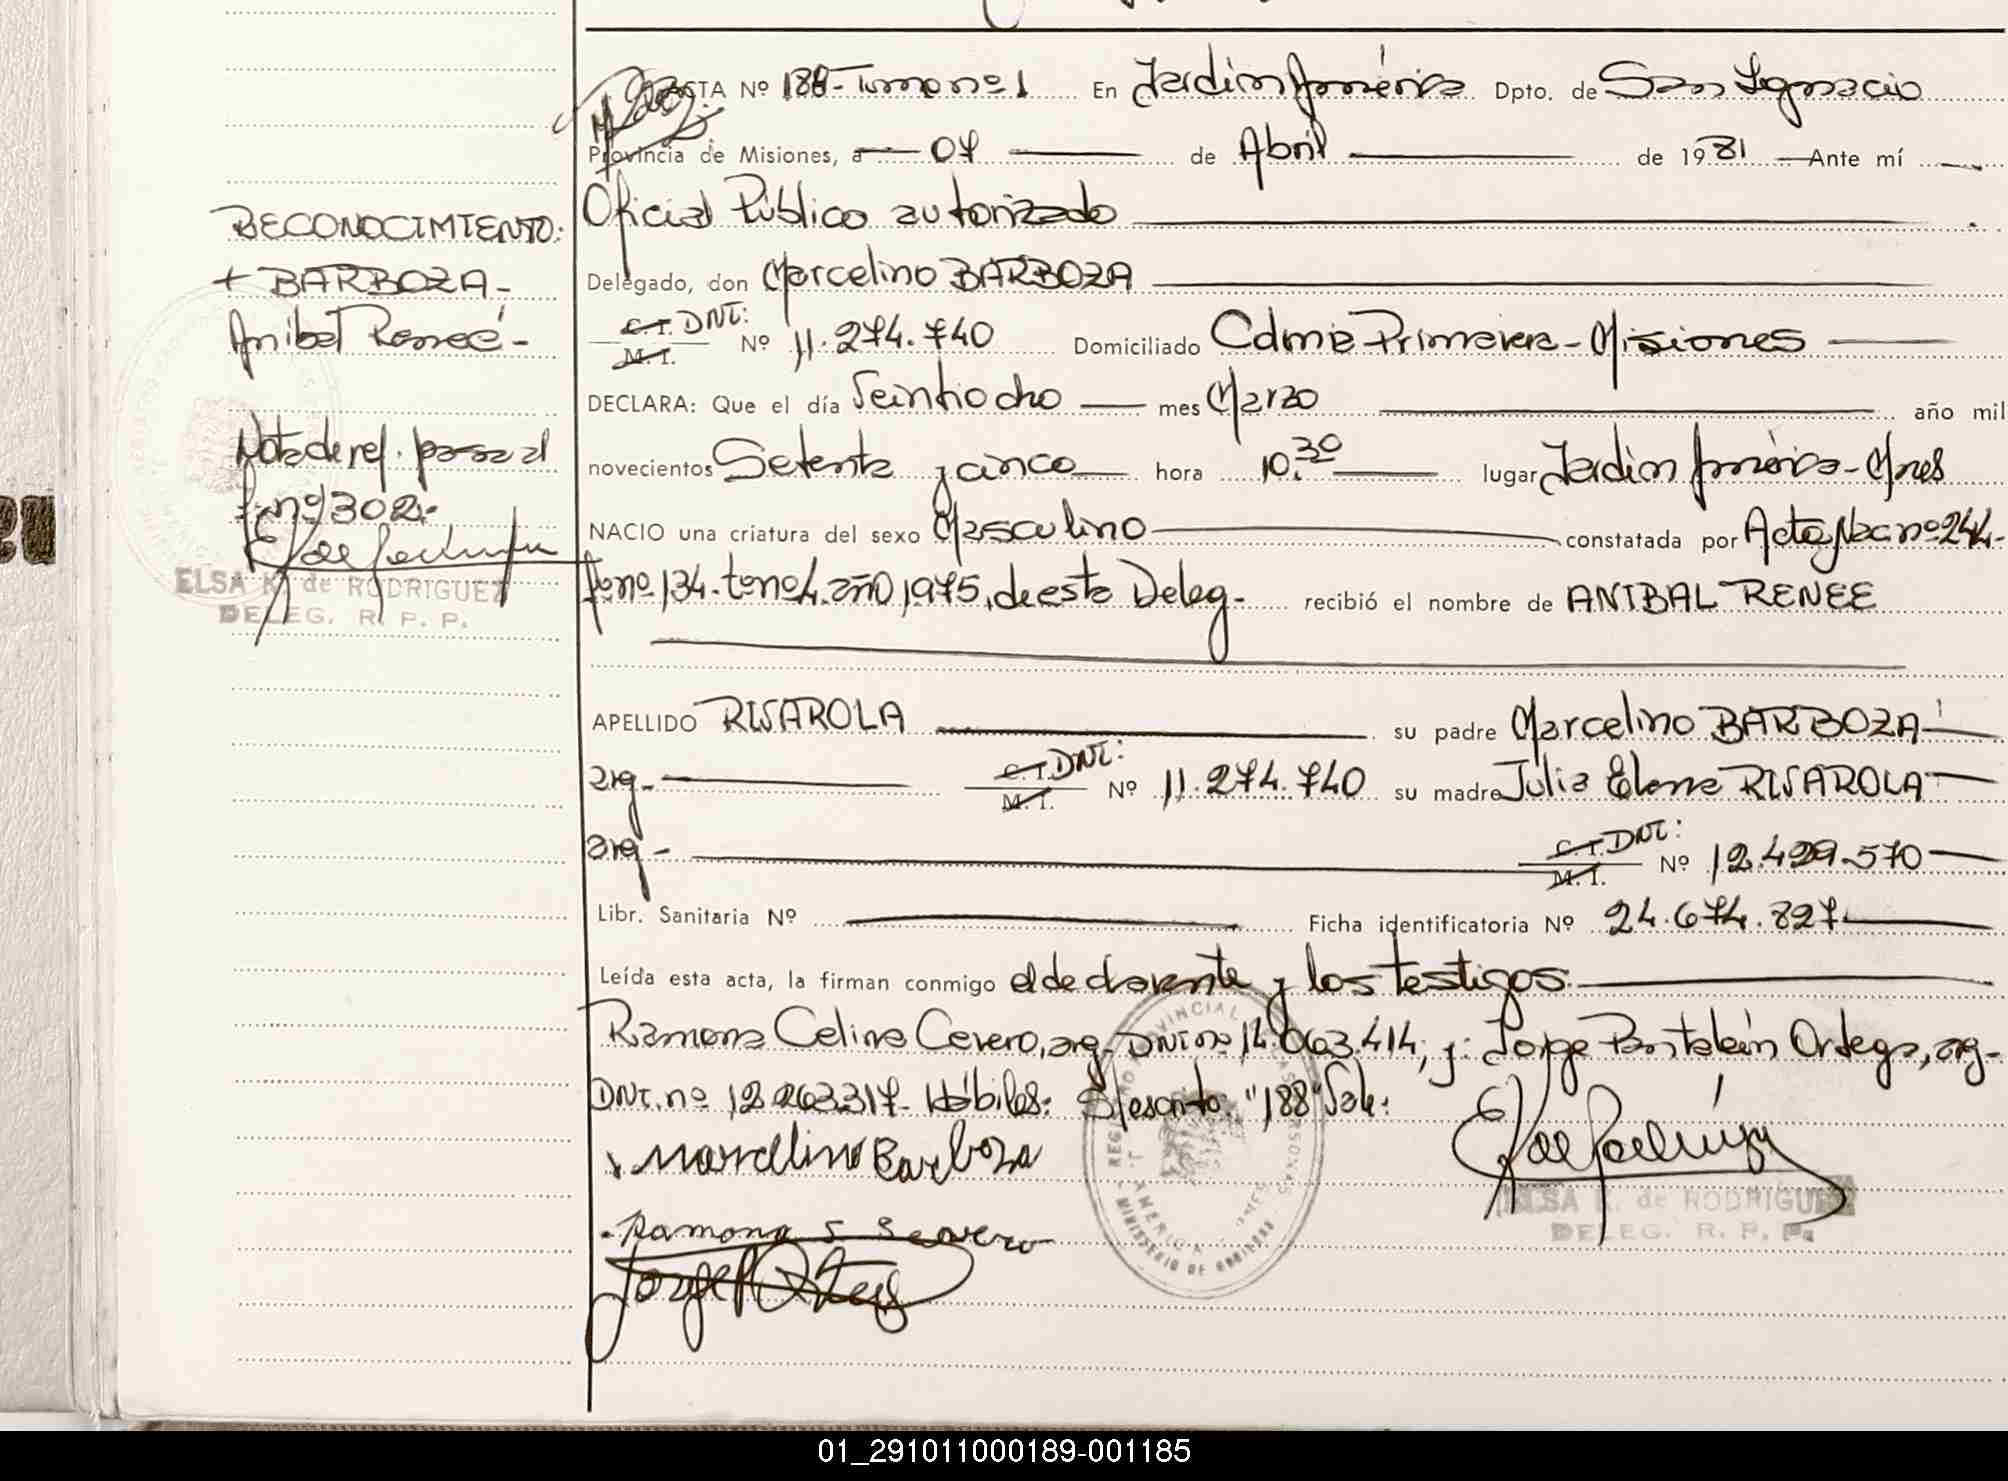 ACTA Nº 188- Tomo nº 1 En Jardin América Dpto. de San Ignacio
Provincia de Misiones, a 07 de Abril de 1981 Ante mí
RECONOCIMIENTO: Oficial Público autorizado
+ BARBOZA- Delegado, don Marcelino BARBOZA
Anibal Reneé- C.I. DNI: M.I. Nº 11.274.740 Domiciliado Cdmia Primavera - Misiones
DECLARA: Que el día Veintiocho mes Marzo año mil
Nota de ref. pasa al novecientos Setenta y cinco hora 10.30 lugar Jardin América - Mnes
fº nº 302.- NACIO una criatura del sexo Masculino constatada por Acta Nac nº 244-
ELSA K. de RODRIGUEZ fº nº 134. tº nº 4. año 1975, de esta Deleg- recibió el nombre de ANIBAL RENEE
DELEG. R. P. P.
APELLIDO RISAROLA su padre Marcelino BARBOZA-
arg- C.I. DNI: M.I. Nº 11.274.740 su madre Julia Elena RISAROLA-
arg- C.I. DNI: M.I. Nº 12.429.570
Libr. Sanitaria Nº Ficha identificatoria Nº 24.674.827
Leída esta acta, la firman conmigo el declarante y los testigos:
Ramona Celina Cevero, arg- DNI nº 14.063.414, y: Jorge Pantaleón Ortega, arg-
DNI. nº 12.263.317- Hábiles: S/escrito: "188" Vale:
Marcelino Barboza
ELSA K. de RODRIGUEZ
DELEG. R. P. P.
Ramona S Severo
Jorge P Ortega
01_291011000189-001185